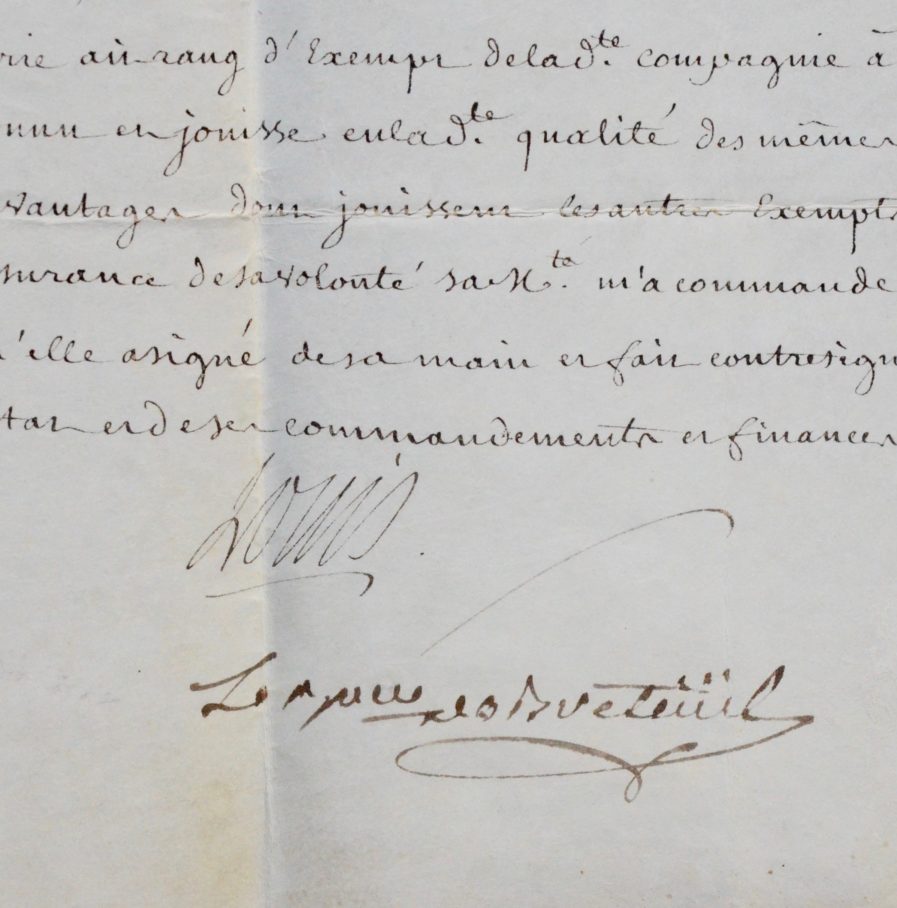 rie au rang d'Exempt de la d.te compagnie à
onnu en jouisse en la d.te qualité des mêmes
vantages dont jouissent les autres Exempts
surance de sa volonté sa M.té m'a commandé
'elle a signé de sa main et fait contresign
tat et de ses commandements et finances
Louis
Le Breteüil